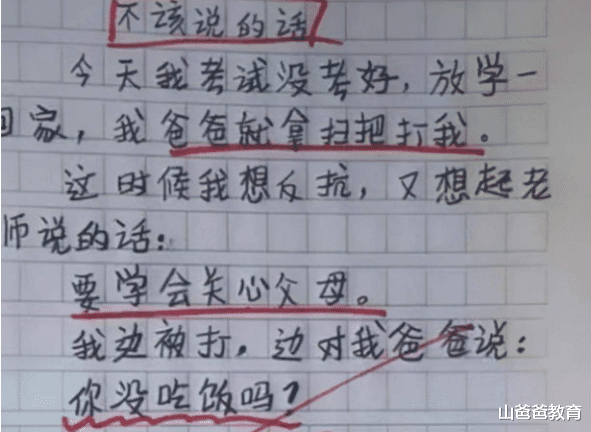 不该说的话
今天我考试没考好，放学一
回家，我爸爸就拿扫把打我。
这时候我想反抗，又想起老
师说的话：
要学会关心父母。
我边被打，边对我爸爸说：
你没吃饭吗？
山爸爸教育